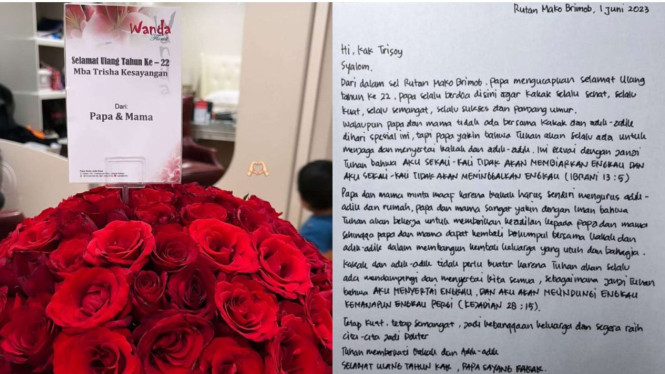 Wanda
Florist
Selamat Ulang Tahun Ke - 22
Mba Trisha Kesayangan
Dari:
Papa & Mama
Rutan Mako Brimob, 1 Juni 2023
Hi, Kak Trisoy
Syalom.
Dari dalam sel Rutan Mako Brimob, papa mengucapkan selamat ulang
tahun ke 22, papa selalu berdoa disini agar kakak selalu sehat, selalu
kuat, selalu semangat, selalu sukses dan panjang umur.
Walaupun papa dan mama tidak ada bersama kakak dan adik-adik
dihari spesial ini, tapi papa yakin bahwa Tuhan akan selalu ada untuk
menjaga dan menyertai kakak dan adik-adik. Ini sesuai dengan janji
Tuhan bahwa AKU SEKALI-KALI TIDAK AKAN MEMBIARKAN ENGKAU DAN
AKU SEKALI-KALI TIDAK AKAN MENINGGALKAN ENGKAU (IBRANI 13:5)
Papa dan mama minta maaf karena kakak harus sendiri mengurus adik-
adik dan rumah, papa dan mama sangat yakin dengan iman bahwa
Tuhan akan bekerja untuk memberikan keadilan kepada papa dan mama
sehingga papa dan mama dapat kembali berkumpul bersama kakak dan
adik-adik dalam membangun kembali keluarga yang utuh dan bahagia.
Kakak dan adik-adik tidak perlu kuatir karena Tuhan akan selalu
ada mendampingi dan menyertai kita semua, sebagaimana janji Tuhan
bahwa AKU MENYERTAI ENGKAU DAN AKU AKAN MELINDUNGI ENGKAU
KEMANAPUN ENGKAU PERGI (KEJADIAN 28:15).
Tetap kuat, tetap semangat, jadi kebanggaan keluarga dan segera raih
cita-cita jadi Dokter
Tuhan memberkati kakak dan Adik-adik
SELAMAT ULANG TAHUN KAK, PAPA SAYANG KAKAK.